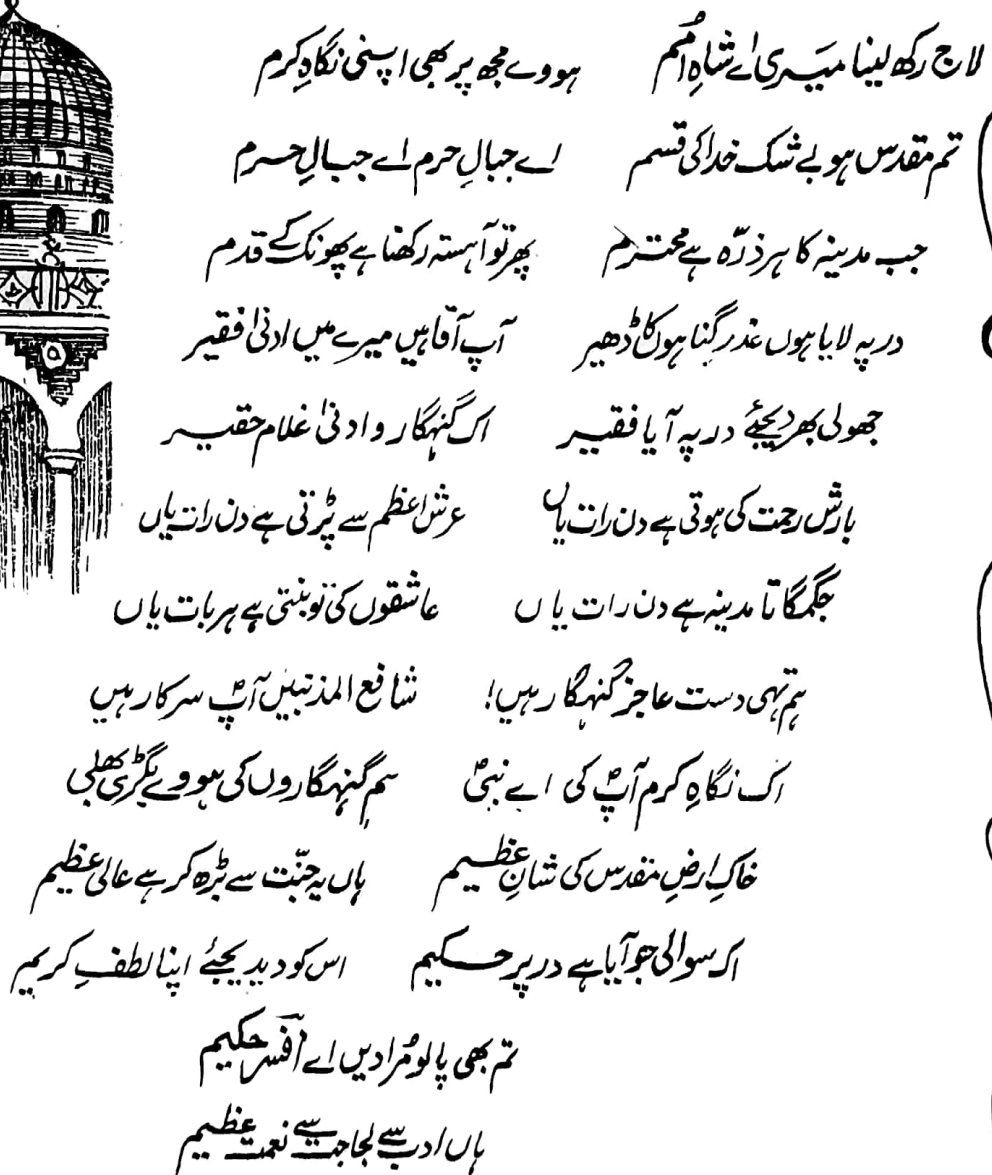 لاج رکھ لینا میری اے شاہِ اُمم ہووے مجھ پر بھی اپنی نگاہِ کرم
تم مقدس ہو بے شک خدا کی قسم اے جبالِ حرم اے جبالِ حرم
جب مدینہ کا ہر ذرّہ ہے محترم پھر تو آہستہ رکھنا ہے پھونک کے قدم
در پہ لایا ہوں عذر گناہوں کا ڈھیر آپ آقا ہیں میرے میں ادنیٰ فقیر
جھولی بھر دیجئے در پہ آیا فقیر اک گنہگار و ادنیٰ غلام حقیر
بارش رحمت کی ہوتی ہے دن رات یاں عرش اعظم سے پڑتی ہے دن رات یاں
جگمگاتا مدینہ ہے دن رات یاں عاشقوں کی تو بنتی ہے ہر بات یاں
ہم تہی دست عاجز گنہگار ہیں! شافع المذنبیں آپؐ سرکار ہیں
اک نگاہِ کرم آپؐ کی اے نبیؐ ہم گنہگاروں کی ہووے بگڑی بھلی
خاکِ ارضِ مقدس کی شانِ عظیم ہاں یہ جنّت سے بڑھ کر ہے عالی عظیم
اک سوالی جو آیا ہے در پر حکیم اس کو دیدیجئے اپنا لطفِ کریم
تم بھی پالو مُرادیں اے افسر حکیم
ہاں ادب سے لجاجت سے نعمت عظیم